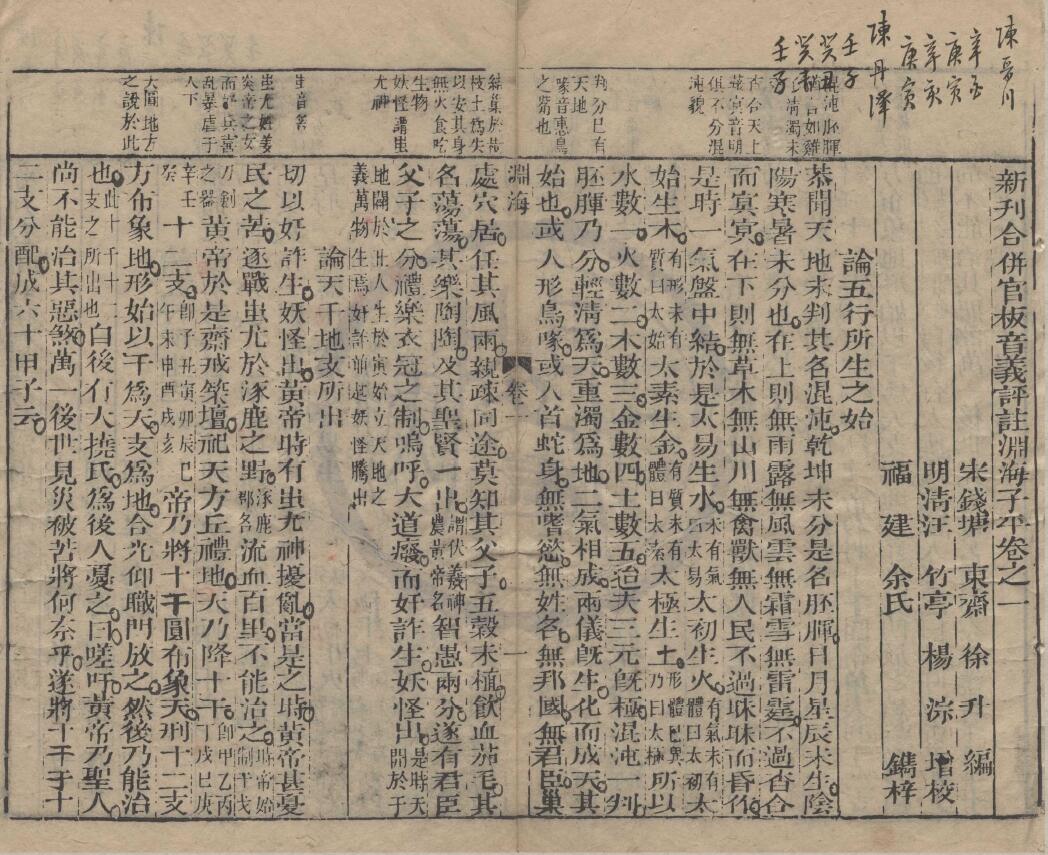 陳晉川
辛酉
庚寅
辛亥
庚寅
陳丹澤
壬子
癸丑
癸未
壬子
新刊合併官板音義評註淵海子平卷之一
宋錢塘 東齋 徐升 編
明清江 竹亭 楊淙 增校
福建 余氏 鐫梓
論五行所生之始
混沌胚腪
猶言如雞
清濁未
恭聞天地未判其名混沌乾坤未分是名胚腪日月星辰未生陰
陽寒暑未分也在上則無雨露無風雲無霜雪無雷霆不過杳合
杳合天上
冥音明
俱不分混
沌貌
而冥冥在下則無草木無山川無禽獸無人民不過昧昧而昏作
是時一氣盤中結於是太易生水未有氣曰太易太初生火有氣未有體曰太初太
始生木有形未有質曰太始太素生金有質未有體曰太素太極生土形體已具乃曰太極所以
水數一火數二木數三金數四土數五迨夫三元既極混沌一判
判分已有
天地
喙音惠鳥
之觜也
胚腪乃分輕清為天重濁為地二氣相成兩儀既生化而成天其
始也或人形鳥喙或人首蛇身無嗜慾無姓名無邦國無君臣巢
淵海 卷一 一
結巢於樹
枝土為失
以安其身
無火食吃
生物
妖怪謂蚩
尤神
處穴居任其風雨親疎同途莫知其父子五穀未植飲血茹毛其
名蕩蕩其樂陶陶及其聖賢一出謂伏羲神農黃帝名智愚兩分遂有君臣
父子之分禮樂衣冠之制嗚呼大道癈而奸詐生妖怪出是時天開於子
地闢於丑人生於寅始立天地之義萬物生焉奸詐並起妖怪騰出
論天干地支所出
蚩音答
蚩尤姓姜
炎帝之女
而好兵喜
亂暴虐于
人下
切以奸詐生妖怪出黃帝時有蚩尤神擾亂當是之時黃帝甚憂
民之苦遂戰蚩尤於涿鹿之野涿鹿郡名流血百里不能治之時帝始制干戈
刀劍之器黃帝於是齋戒築壇祀天方丘禮地天乃降十干即甲乙丙丁戊己庚
辛壬癸十二支即子丑寅卯辰巳午未申酉戌亥帝乃將十干圓布象天形十二支
天圓地方
之說於此
方布象地形始以干為天支為地合光仰職門放之然後乃能治
也此十干十二支之所出也自後有大撓氏為後人憂之曰嗟吁黃帝乃聖人
尚不能治其惡煞萬一後世見災被苦將何奈乎遂將十干于十
二支分配成六十甲子云